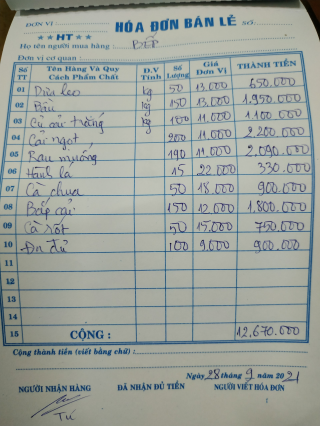 ĐƠN VỊ : HÓA ĐƠN BÁN LẺ Số:
★★HT★★
Họ tên người mua hàng : Bếp
Đơn vị cơ quan :
Số TT Tên Hàng Và Quy Cách Phẩm Chất Đ.V Tính Số Lượng Giá Đơn Vị THÀNH TIỀN
01 Dưa leo kg 50 13.000 650.000
02 Bầu kg 150 13.000 1.950.000
03 Củ cải trắng kg 100 11.000 1.100.000
04 Cải ngọt 200 11.000 2.200.000
05 Rau muống 190 11.000 2.090.000
06 Hành lá 15 22.000 330.000
07 Cà chua 50 18.000 900.000
08 Bắp cải 150 12.000 1.800.000
09 Cà rốt 50 15.000 750.000
10 Đu đủ 100 9.000 900.000
11
12
13
14
15 CỘNG : 12.670.000
Cộng thành tiền (viết bằng chữ) :
Ngày 28 tháng 9 năm 2021
NGƯỜI NHẬN HÀNG ĐÃ NHẬN ĐỦ TIỀN NGƯỜI VIẾT HÓA ĐƠN
Tú